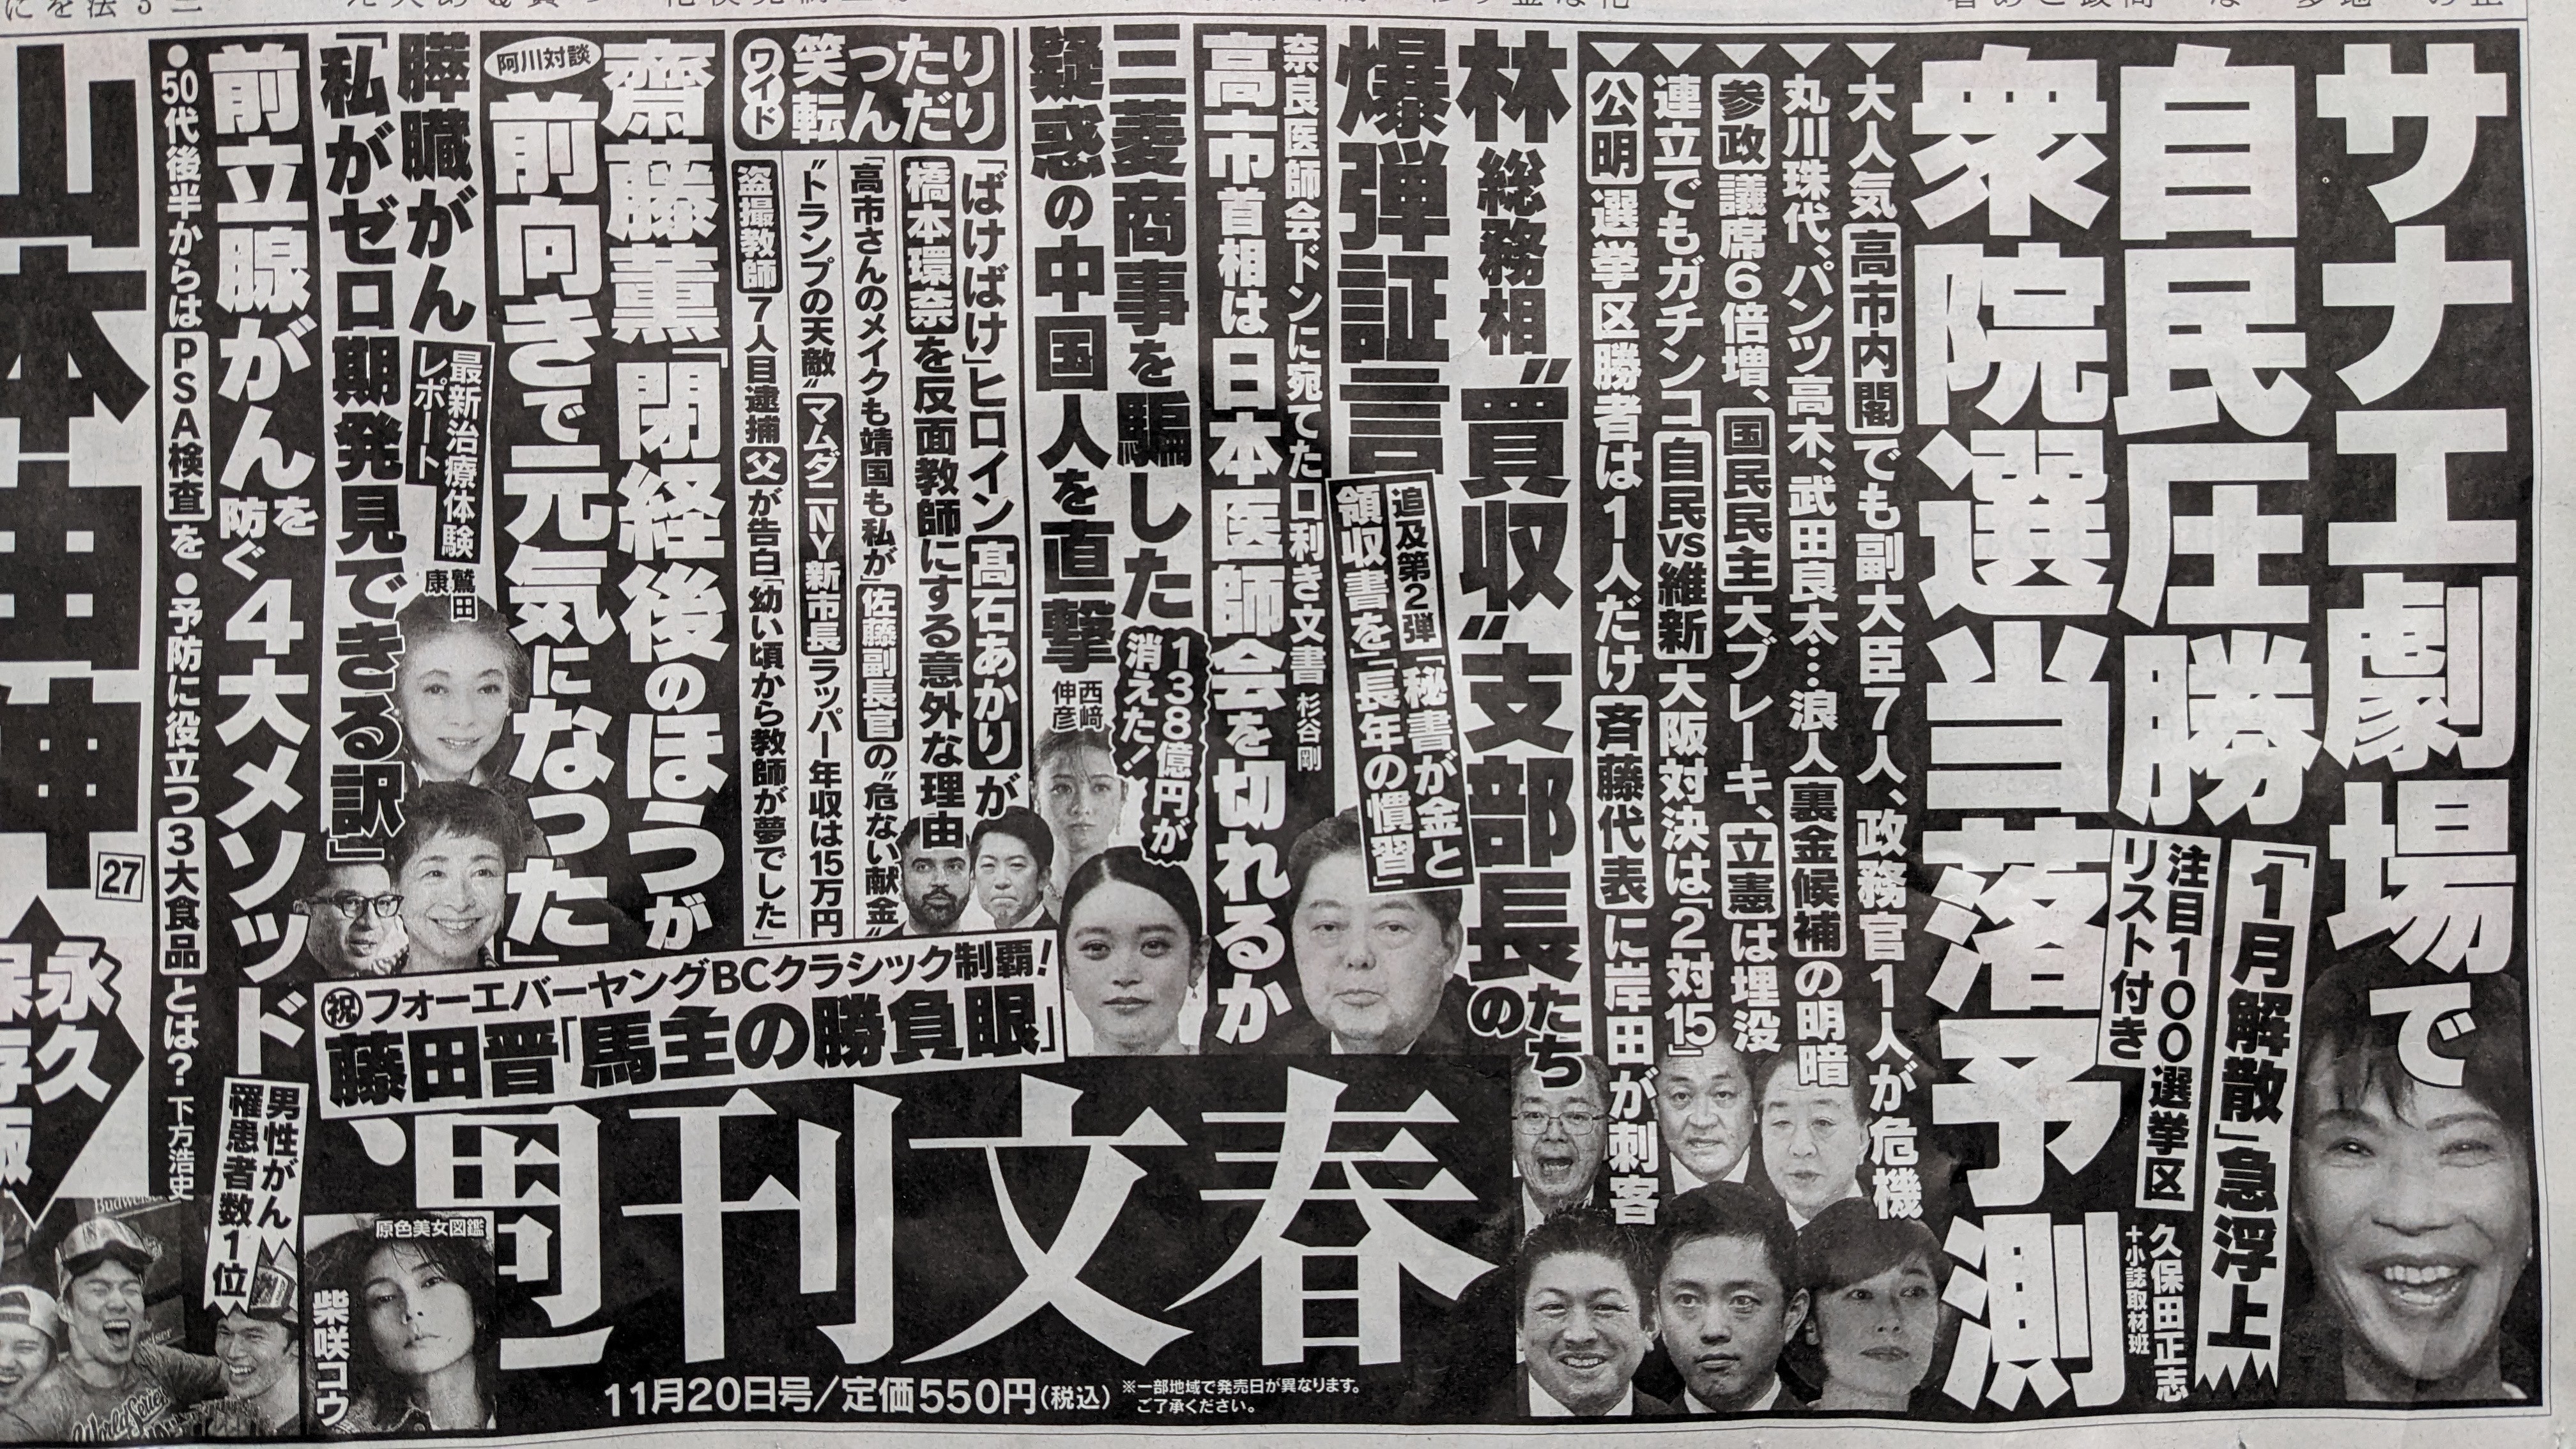 サナエ劇場で
自民圧勝
「1月解散」急浮上
注目100選挙区
リスト付き
久保田正志
+小誌取材班
衆院選当落予測
大人気高市内閣でも副大臣7人、政務官1人が危機
丸川珠代、パンツ高木、武田良太…浪人裏金候補の明暗
参政議席6倍増、国民民主大ブレーキ、立憲は埋没
連立でもガチンコ自民vs維新大阪対決は「2対15」
公明選挙区勝者は1人だけ斉藤代表に岸田が刺客
林総務相〝買収〟支部長たちの
爆弾証言
追及第2弾「秘書が金と
領収書を」「長年の慣習」
奈良医師会ドンに宛てた口利き文書 杉谷剛
高市首相は日本医師会を切れるか
三菱商事を騙した
138億円が
消えた!
疑惑の中国人を直撃
西﨑
伸彦
ワイド
笑つたり
転んだり
「ばけばけ」ヒロイン髙石あかりが
橋本環奈を反面教師にする意外な理由
「高市さんのメイクも靖国も私が」佐藤副長官の〝危ない献金〟
〝トランプの天敵〟マムダニNY新市長ラッパー年収は15万円
盗撮教師7人目逮捕父が告白「幼い頃から教師が夢でした」
齋藤薫「閉経後のほうが
阿川対談
前向きで元気になった」
膵臓がん
最新治療体験
レポート
鷲田
康
「私がゼロ期発見できる訳」
前立腺がんを防ぐ4大メソッド
男性がん
罹患者数1位
●50代後半からはPSA検査を ●予防に役立つ3大食品とは? 下方浩史
27
永久
㊗フォーエバーヤングBCクラシック制覇!
藤田晋「馬主の勝負眼」
週刊文春
11月20日号/定価550円(税込)
※一部地域で発売日が異なります。
ご了承ください。
原色美女図鑑
柴咲コウ
Budweiser
World Series